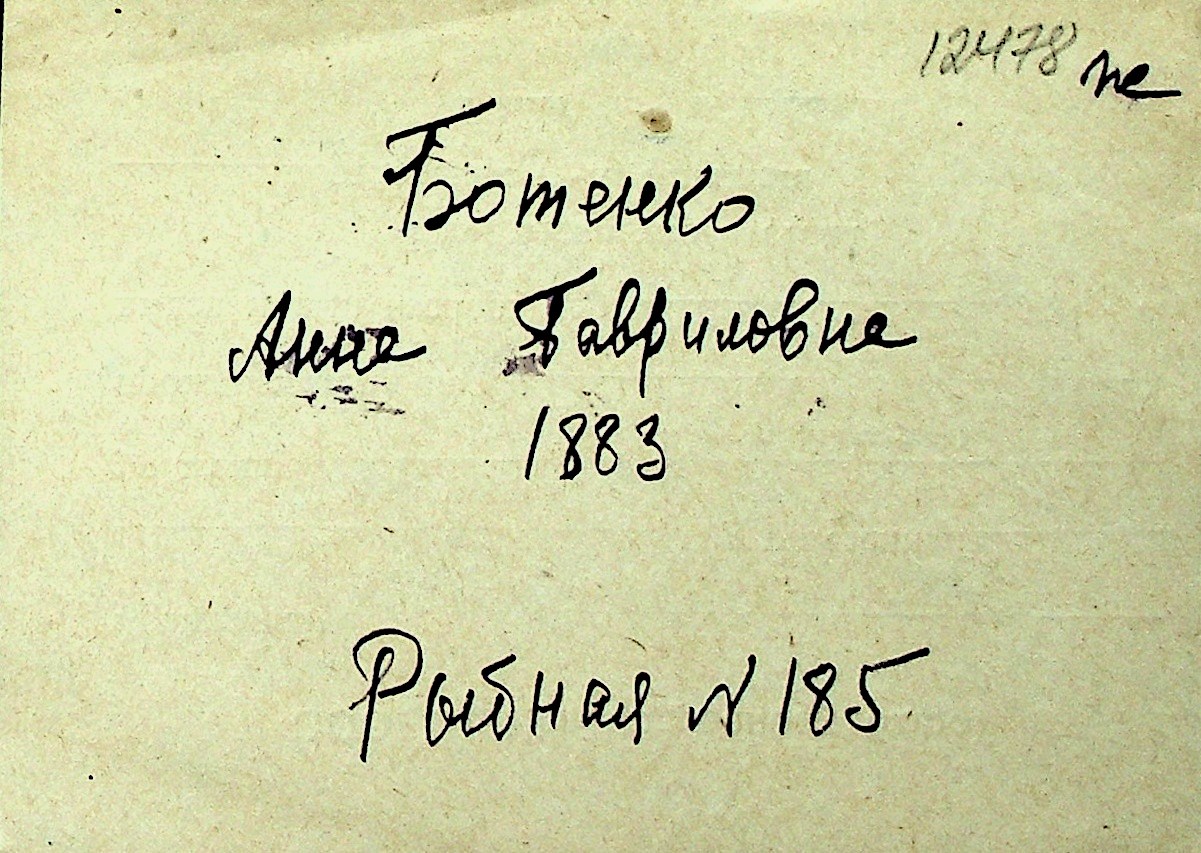 12478 пе
Ботенко
Анна Гавриловна
1883
Рыбная N 185